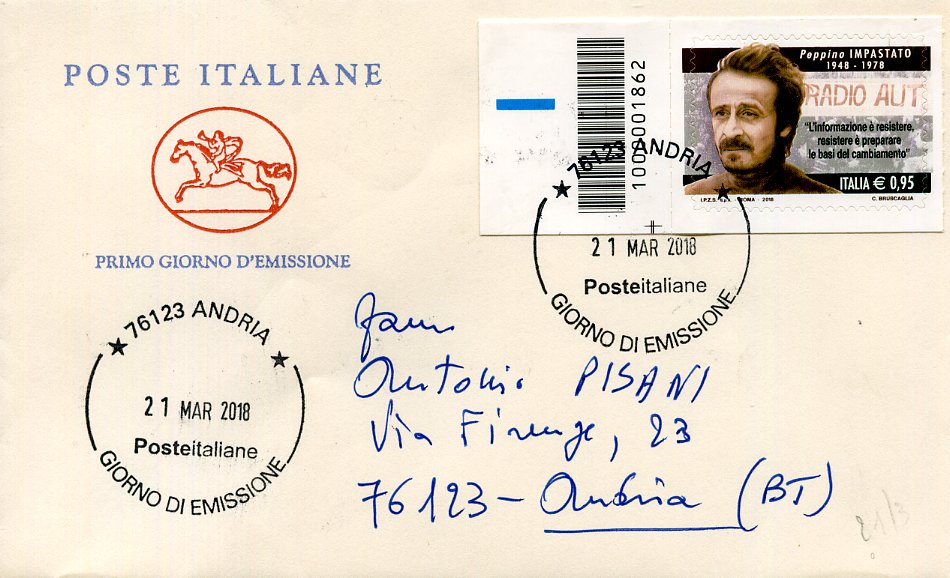 POSTE ITALIANE
PRIMO GIORNO D'EMISSIONE
1000001862
Peppino IMPASTATO
1948 - 1978
RADIO AUT
"L'informazione è resistere,
resistere è preparare
le basi del cambiamento"
ITALIA € 0,95
I.P.Z.S. S.p.A. - ROMA - 2018
C. BRUSCAGLIA
76123 ANDRIA
21 MAR 2018
Posteitaliane
GIORNO DI EMISSIONE
76123 ANDRIA
21 MAR 2018
Posteitaliane
GIORNO DI EMISSIONE
Antonio PISANI
Via Firenze, 23
76123 - Andria (BT)
21/3